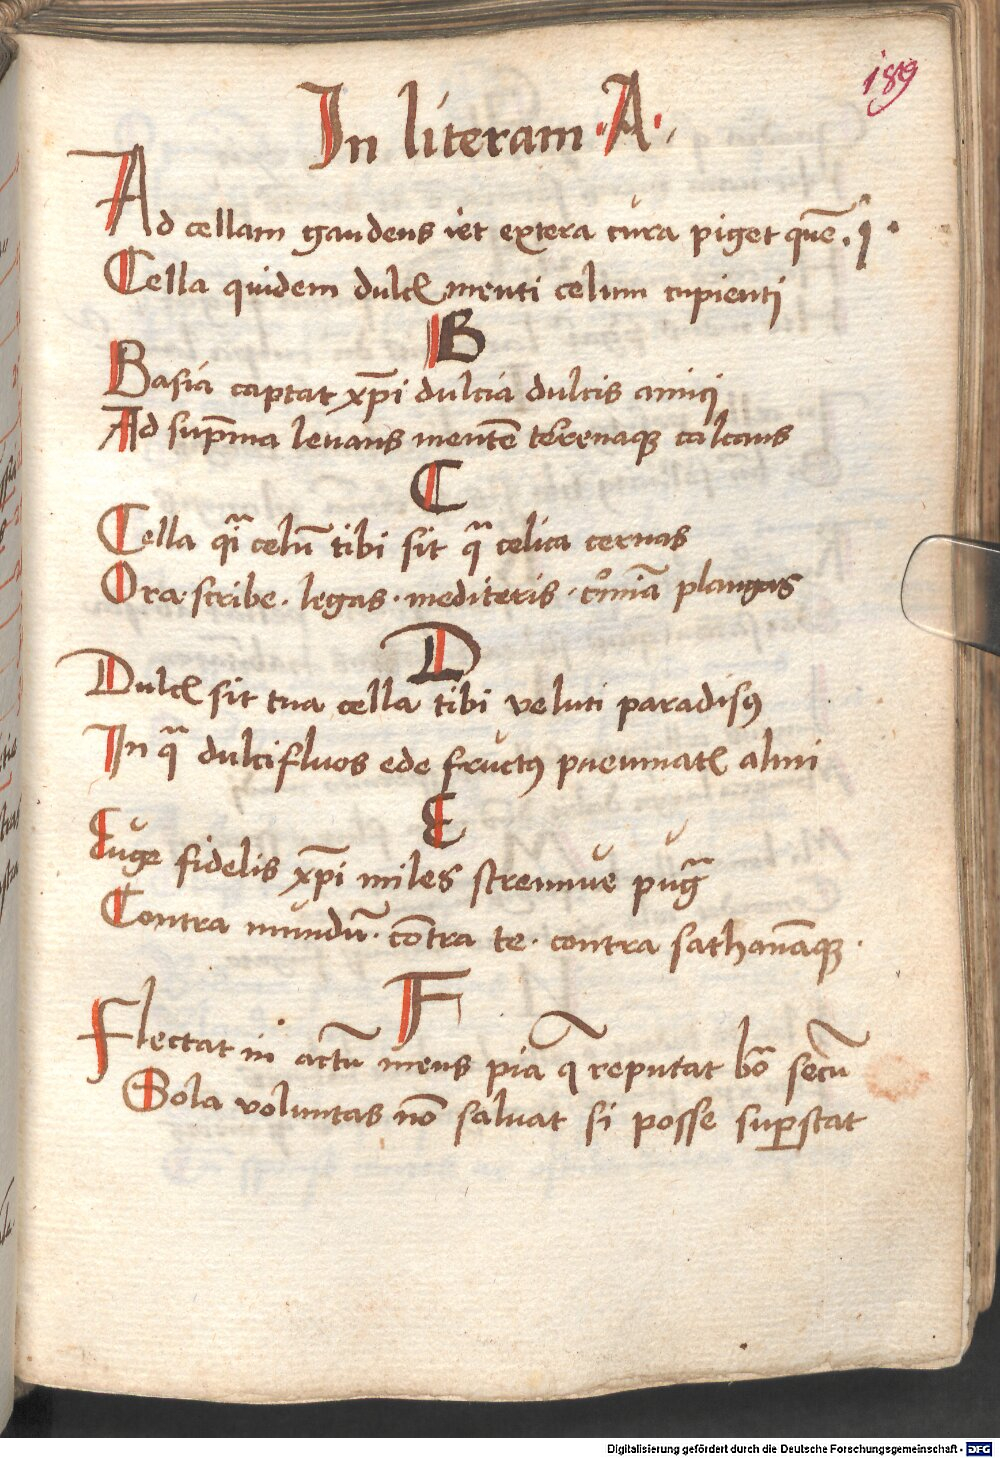 189
In literam · A ·
Ad cellam gaudens iet extera cura piget quē . i .
Cella quidem dulcꝭ menti celum cupienti
B
Basia captat xp̄i dulcia dulcis amici
Ad sup̄ma leuans mentē terrenaqꝫ calcans
C
Cella celū tibi sit celica cernas
Ora · scribe · legas · mediteris · plangas
D
Dulcꝭ sit tua cella tibi veluti paradisꝯ
In dulcifluos ede fructꝯ pneumatꝭ almi
E
Euge fidelis xp̄i miles strennue
Contra mundū · cōtra te · contra sathanāqꝫ ·
F
Flectat in actū mens pia reputat secū
Sola voluntas nō saluat si posse suꝑstat
Digitalisierung gefördert durch die Deutsche Forschungsgemeinschaft - DFG